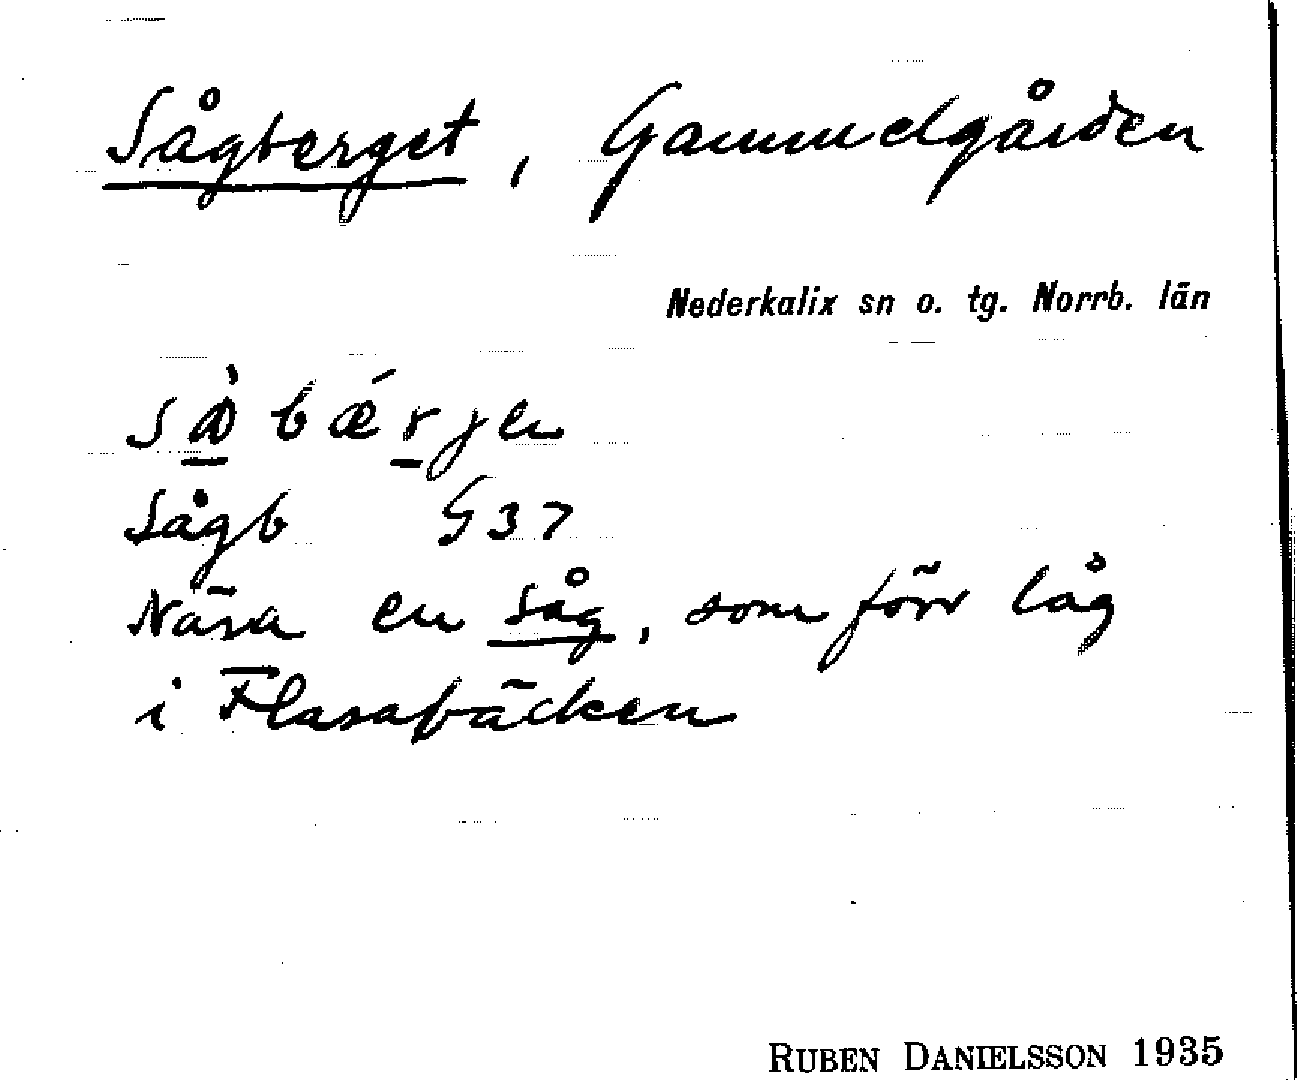 Sågberget, Gammelgården
Nederkalix sn o. tg. Norrb. län
Sågb G37
Nära en såg, som förr låg
i Flasabäcken
RUBEN DANIELSSON 1935